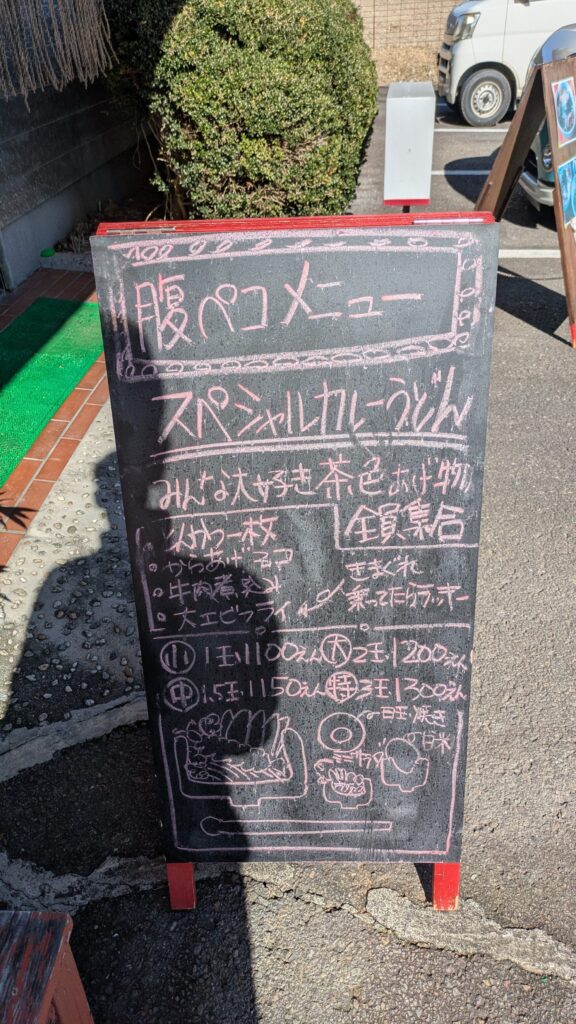 腹ペコメニュー
スペシャルカレーうどん
みんな大好き茶色あげ物
全員集合
かつ一枚
からあげ
牛肉煮込み
大エビフライ
きまぐれ
乗ってたらラッキー
小 1玉 1100えん 大 2玉 1200えん
中 1.5玉 1150えん 特 3玉 1300えん
目玉焼き
ミニサラダ
白米